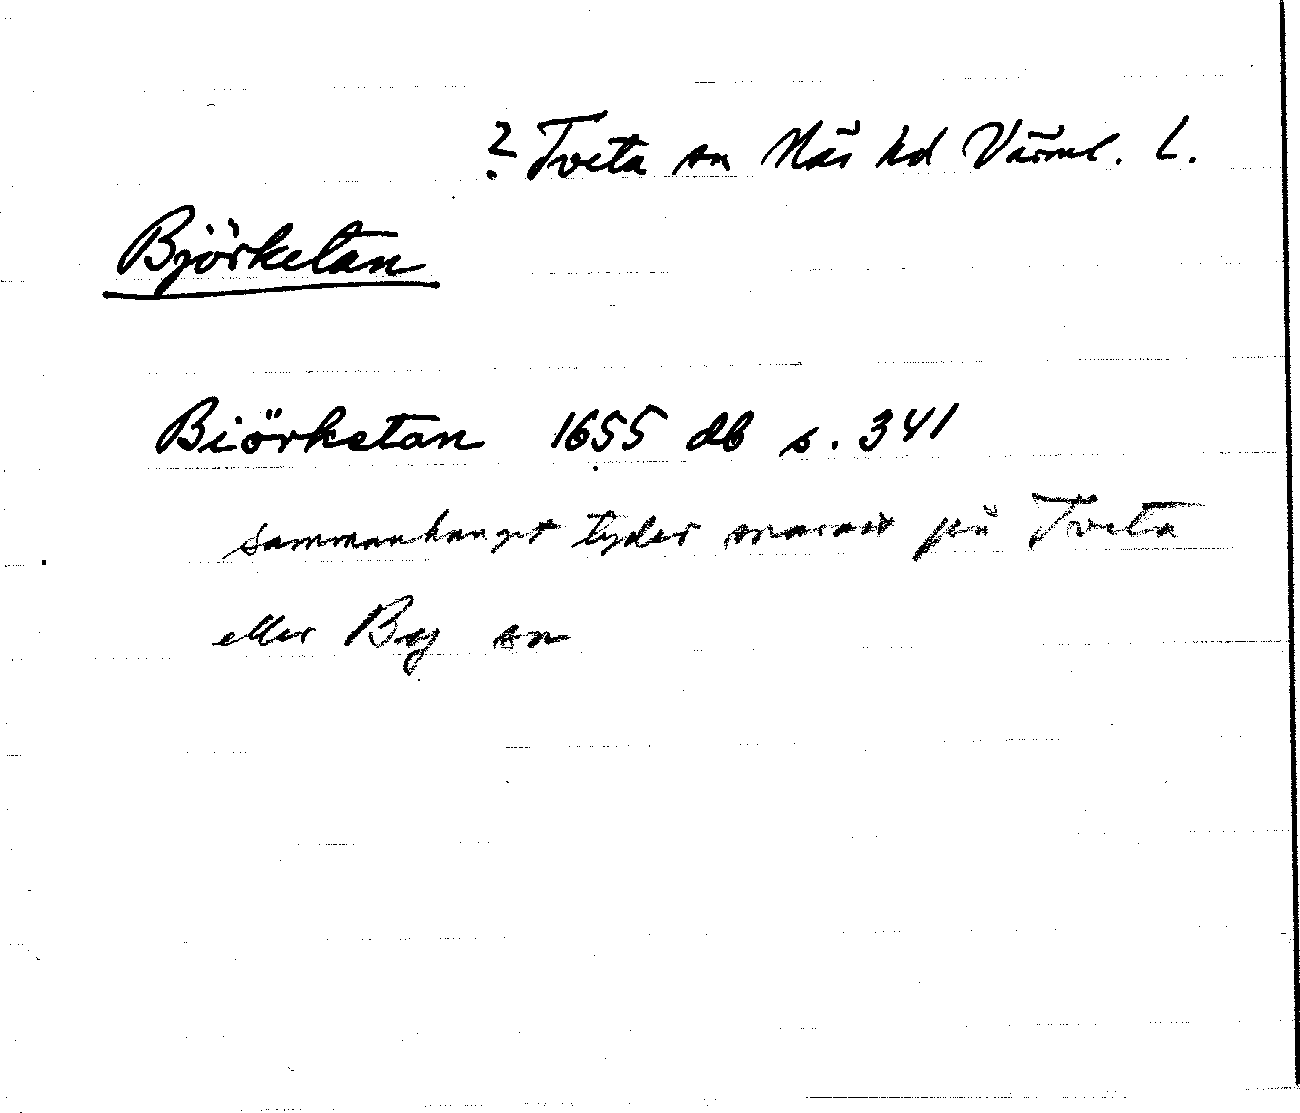 ? Tveta sn Näs hd Värml. L.
Björketan
Biörketan 1655 db s. 341
sammanhanget tyder snarast på Tveta
eller By sn